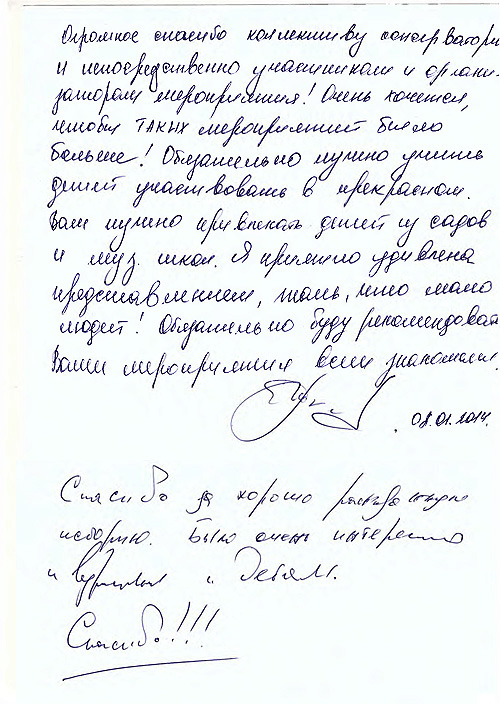 Огромное спасибо коллективу консерватори
и непосредственно участникам и органи-
заторам мероприятия! Очень хочется,
чтобы ТАКИХ мероприятий было
больше! Обязательно нужно учить
детей участвовать в прекрасном.
Вам нужно привлекать детей из садов
и муз. школ. Я приятно удивлена
представлением, жаль, что мало
людей! Обязательно буду рекомендоват
Ваши мероприятия всем знакомым.
08.01.2014.
Спасибо за хорошо
историю. Было очень интересно
и взрослым и детям.
Спасибо!!!